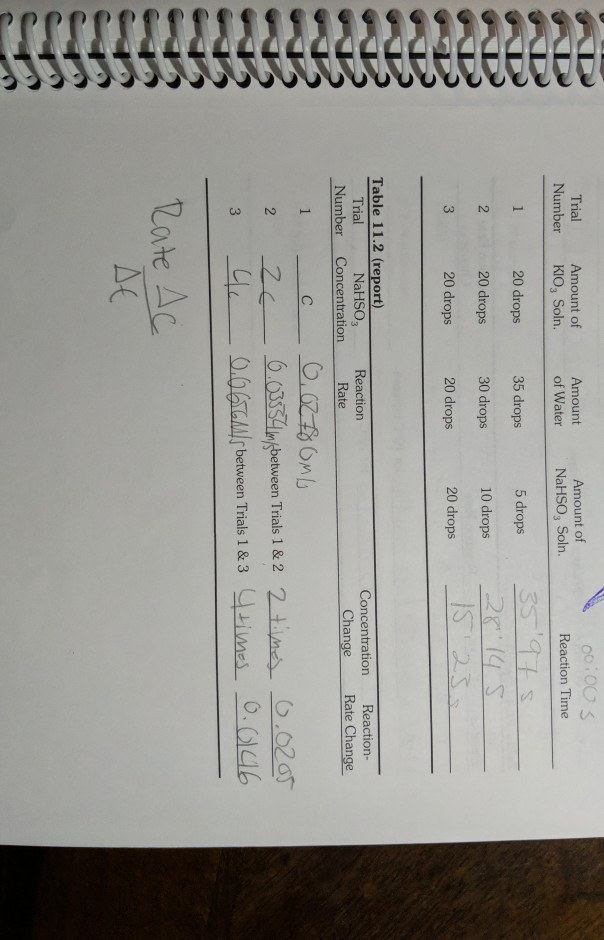 00:00 S
Trial Number Amount of KIO3 Soln. Amount of Water Amount of NaHSO3 Soln. Reaction Time
1 20 drops 35 drops 5 drops 35'97 s
2 20 drops 30 drops 10 drops 28'14 S
3 20 drops 20 drops 20 drops 15'23 s
Table 11.2 (report)
Trial Number NaHSO3 Concentration Reaction Rate Concentration Change Reaction-Rate Change
1 c
2 2c between Trials 1 & 2 2 times 0.0205
3 4c 0.0656M/s between Trials 1 & 3 4 times
Rate ΔC
Δt